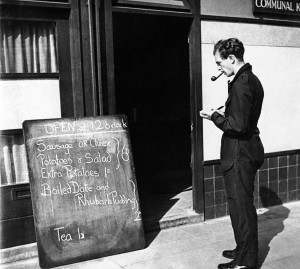 COMMUNAL K
OPEN at 12 O'clock
Sausage or Cheese
Potatoes & Salad
Extra Potatoes 1
Boiled Date and
Rhubarb Puding
2
Tea